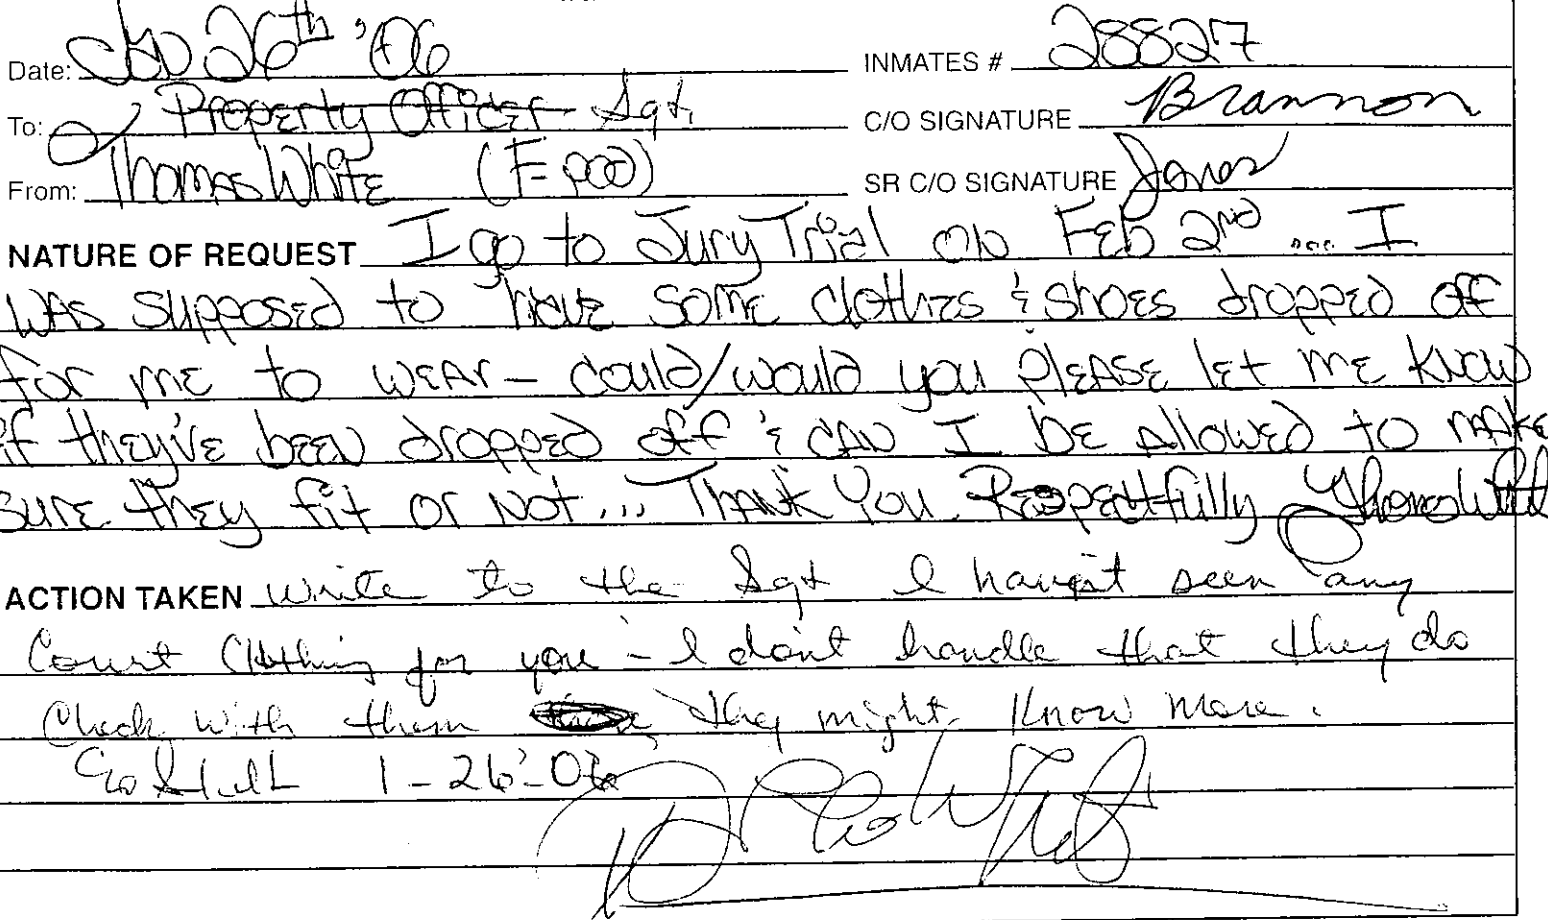 Date: JAN 26th '06 INMATES # 28827
To: Property Officer Sgt. C/O SIGNATURE Brannon
From: Thomas White (F-pod) SR C/O SIGNATURE Jones
NATURE OF REQUEST I go to Jury Trial on Feb 2nd ... I
was supposed to have some clothes & shoes dropped off
for me to wear - could/would you please let me know
if they've been dropped off & can I be allowed to make
sure they fit or not... Thank You. Respectfully Thomas White
ACTION TAKEN Write to the Sgt I haven't seen any
Court Clothing for you - I don't handle that they do
Check with them they might know more.
C/o 1-26-06